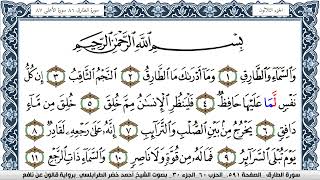 الجزء الثلاثون
سورة الطارق ٨٦ سورة الأعلى ٨٧
بِسْمِ اللَّهِ الرَّحْمَٰنِ الرَّحِيمِ
وَالسَّمَآءِ وَالطَّارِقِ ١ وَمَآ أَدْرَىٰكَ مَا الطَّارِقُ ٢ النَّجْمُ الثَّاقِبُ ٣ إِن كُلُّ
نَفْسٍ لَّمَا عَلَيْهَا حَافِظٌ ٤ فَلْيَنظُرِ الْإِنسَٰنُ مِمَّ خُلِقَ ٥ خُلِقَ مِن مَّآءٍ
دَافِقٍ ٦ يَخْرُجُ مِنۢ بَيْنِ الصُّلْبِ وَالتَّرَآئِبِ ٧ إِنَّهُۥ عَلَىٰ رَجْعِهِۦ لَقَادِرٌ ٨
يَوْمَ تُبْلَى السَّرَآئِرُ ٩ فَمَا لَهُۥ مِن قُوَّةٍ وَلَا نَاصِرٍ ١٠ وَالسَّمَآءِ ذَاتِ الرَّجْعِ ١١
سورة الطارق . الصفحة ٥٩١ . الحزب ٦٠ . الجزء ٣٠ . بصوت الشيخ أحمد خضر الطرابلسي . برواية قالون عن نافع